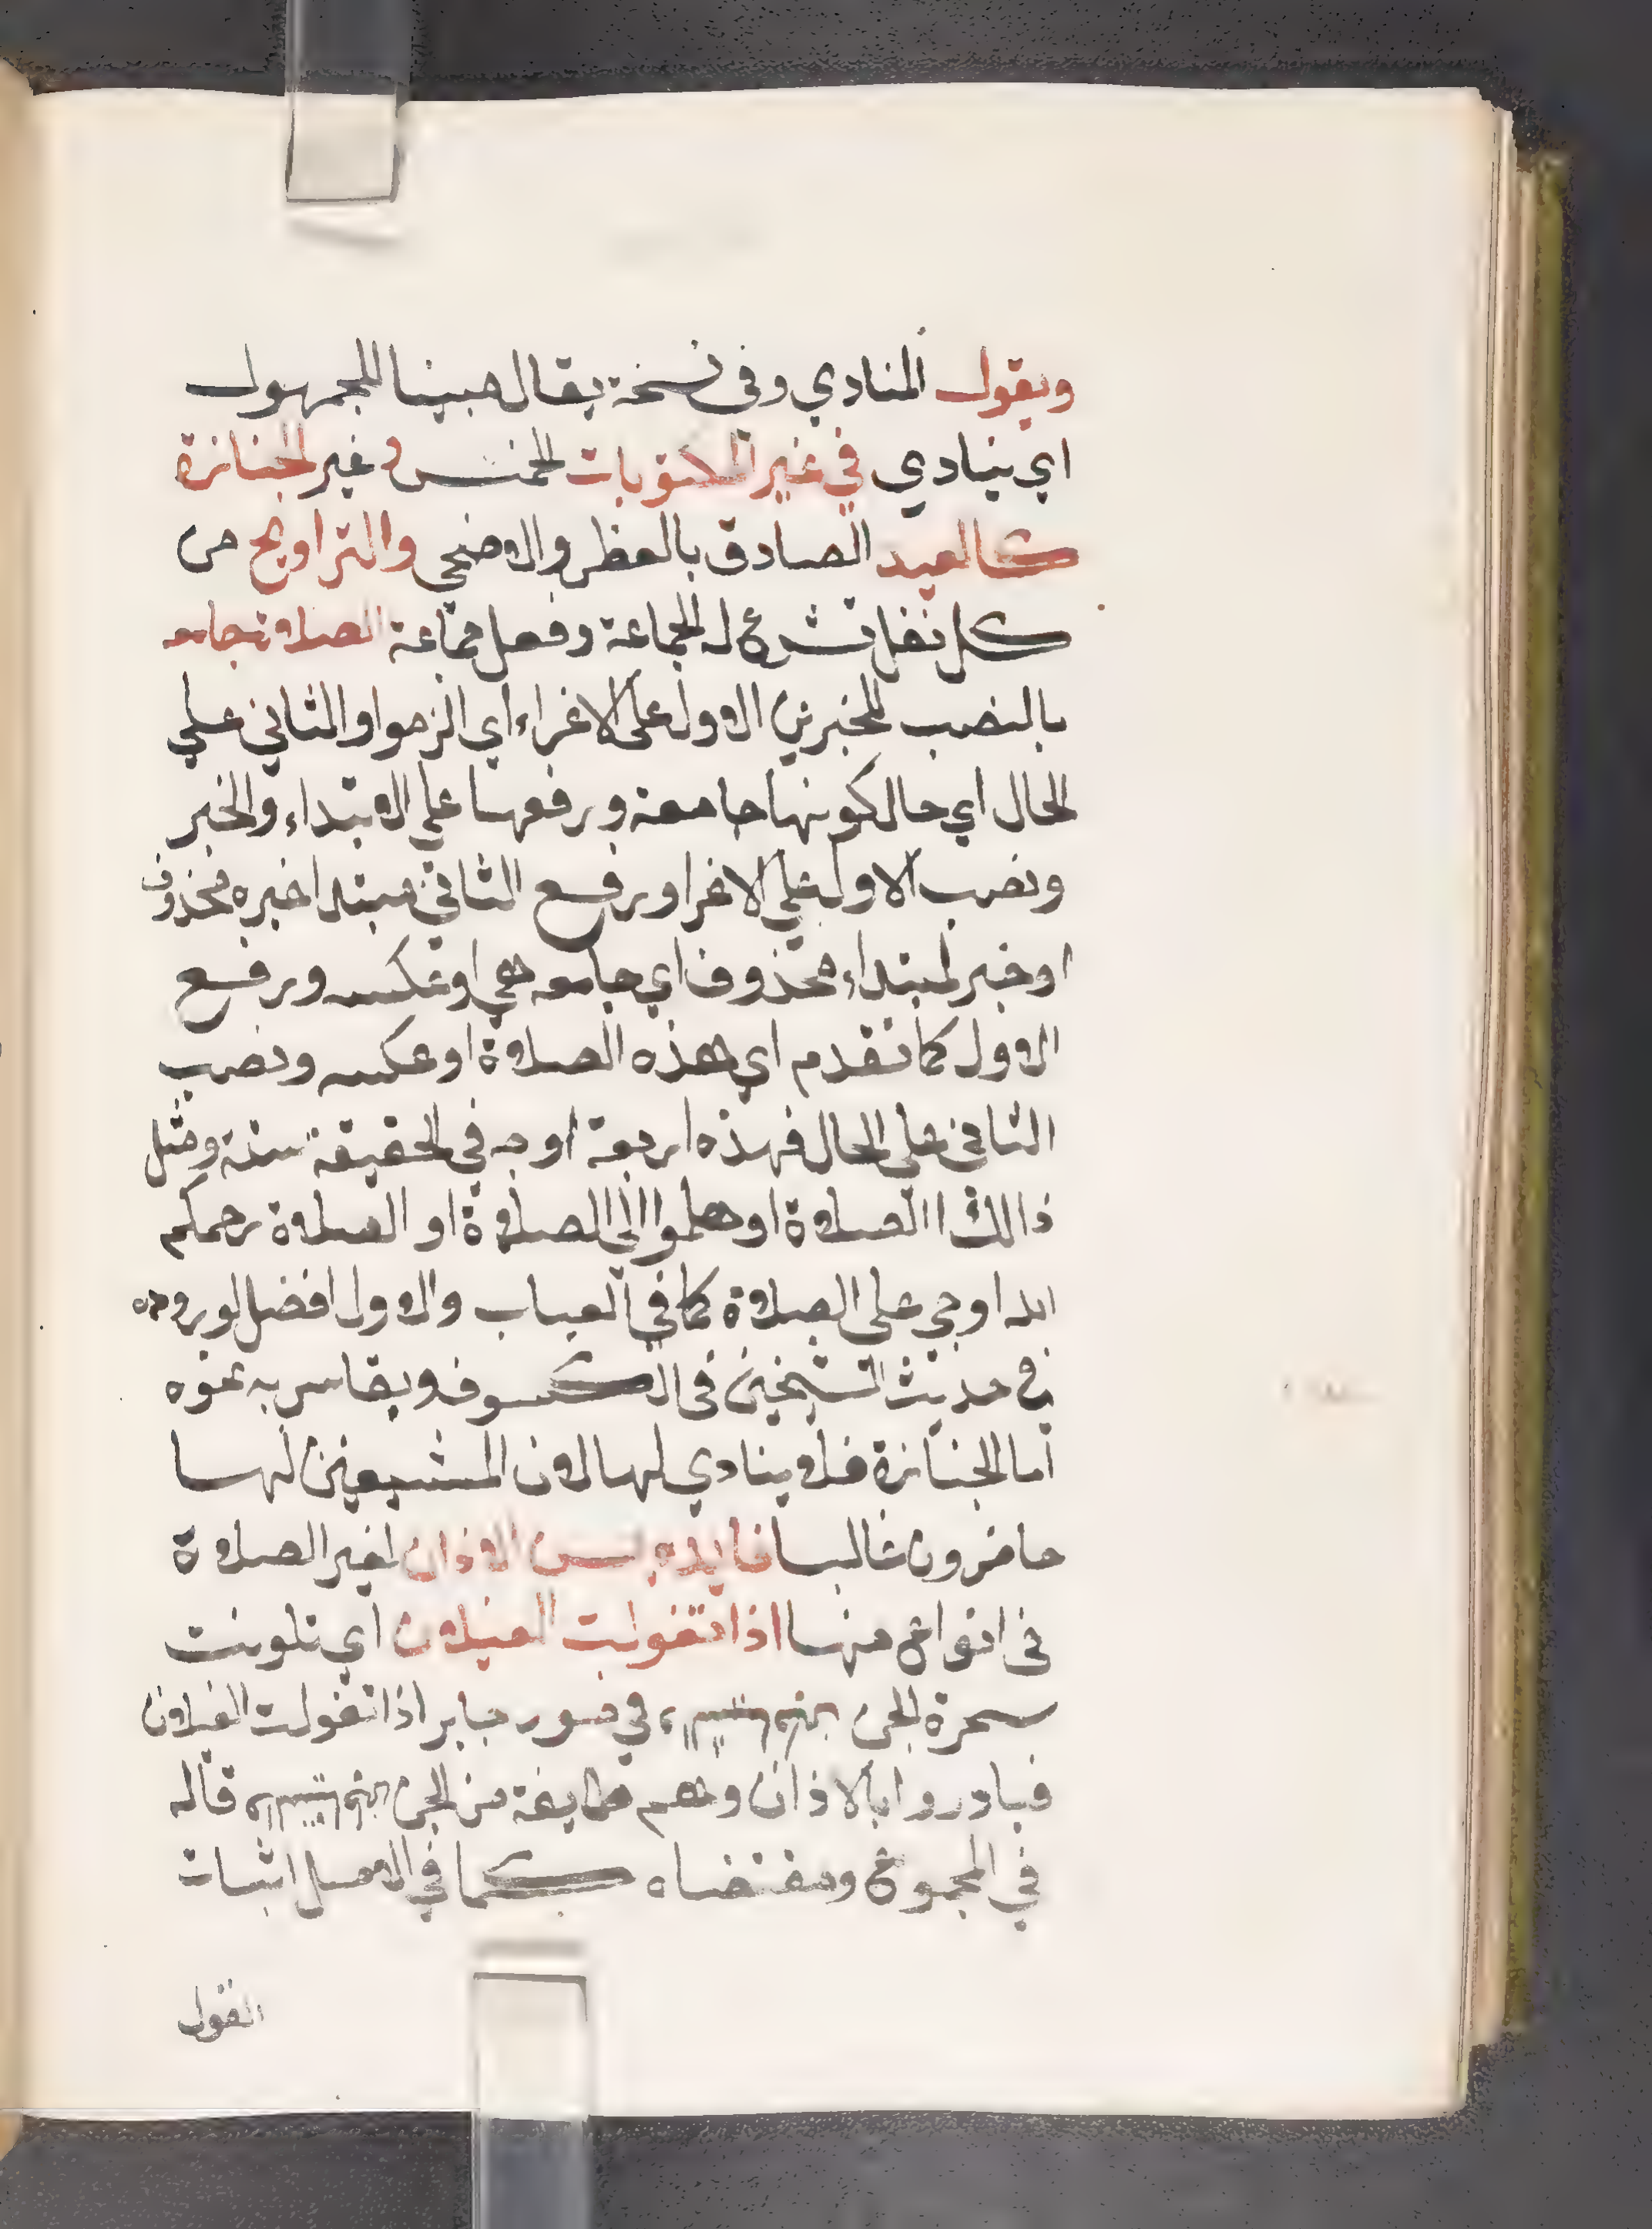 ويقول المنادي وفى نسخة يقال مبينا للمجهول
اي ينادي في غير المكتوبات الخمس وغير الجنازة
كالعيد الصادق بالفطر والاضحى والتراويح من
كل نفل تشرع له الجماعة وفعل جماعة الصلاة جامعه
بالنصب للخبرين الاول على الاغراء اي الزموا والثاني علي
الحال اي حال كونها جامعة ورفعها علي الابتداء والخبر
ونصب الاول علي الاغرا ورفع الثاني مبتدا خبره محذوف
او خبر لمبتداء محذوف اي جامعه هي او عكسه ورفع
الاول كما تقدم اي هذه الصلاة او عكسه ونصب
الثاني علي الحال فهذه اربعة اوجه في الحقيقة ستة ومثل
ذالك االصلاة او هلموا الي الصلاة او الصلاة رحمكم
الله او حي على الصلاة كما في العباب والاول افضل لوروده
في حديث الشيخين فى الكسوف ويقاس به نحوه
اما الجنازة فلا ينادي لها لان المشيعين لها
حاضرون غالبا فايده يسن الاذان لغير الصلاة
فى انواع منها اذا تغولت الغيلان اي تلونت
سحرة الجن في صور جابر اذا تغولت الغيلان
فبادروا بالاذان وهم طايفة من الجن قاله
في المجموع ومقتضاه كما في الاصل اثبات
القول